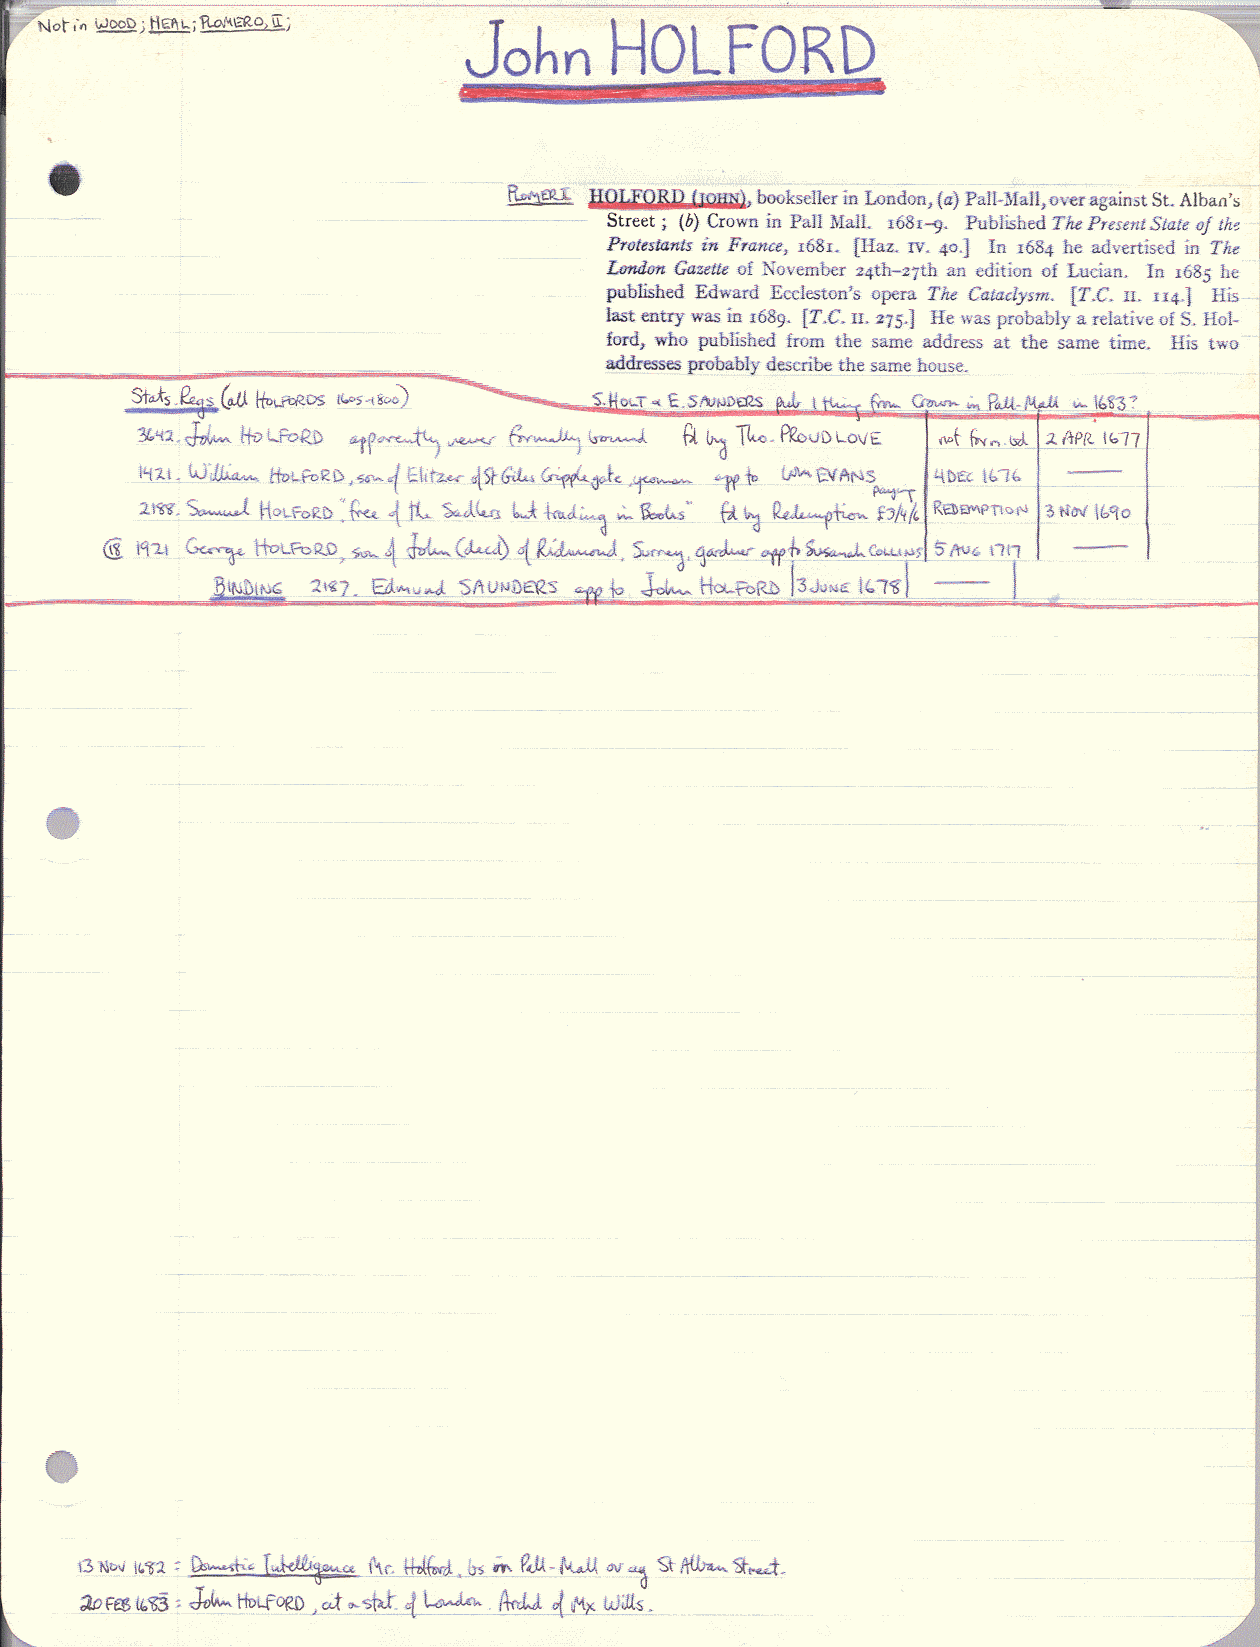 Not in WOOD; HEAL; PLOMER O, II;
John HOLFORD
PLOMER I HOLFORD (JOHN), bookseller in London, (a) Pall-Mall, over against St. Alban's
Street; (b) Crown in Pall Mall. 1681-9. Published The Present State of the
Protestants in France, 1681. [Haz. IV. 40.] In 1684 he advertised in The
London Gazette of November 24th-27th an edition of Lucian. In 1685 he
published Edward Eccleston's opera The Cataclysm. [T.C. II. 114.] His
last entry was in 1689. [T.C. II. 275.] He was probably a relative of S. Hol-
ford, who published from the same address at the same time. His two
addresses probably describe the same house.
Stats. Regs (all HOLFORDS 1605-1800) S. HOLT & E. SAUNDERS pub 1 thing from Crown in Pall-Mall in 1683?
3642. John HOLFORD apparently never formally bound fd by Tho. PROUDLOVE not form. bd 2 APR 1677
1421. William HOLFORD, son of Elitzer of St Giles Cripplegate, yeoman app to Wm EVANS 4 DEC 1676 —
2188. Samuel HOLFORD "free of the Sadlers but trading in Books" fd by Redemption paying £3/4/6 REDEMPTION 3 NOV 1690
(18 1921 George HOLFORD, son of John (decd) of Richmond, Surrey, gardner app to Susanah COLLINS 5 AUG 1717 —
BINDING 2187. Edmund SAUNDERS app to John HOLFORD 3 JUNE 1678 —
13 NOV 1682 = Domestic Intelligence Mr. Holford, bs in Pall-Mall ov ag St Alban Street.
20 FEB 1683 = John HOLFORD, cit & stat. of London. Archd of Mx Wills.